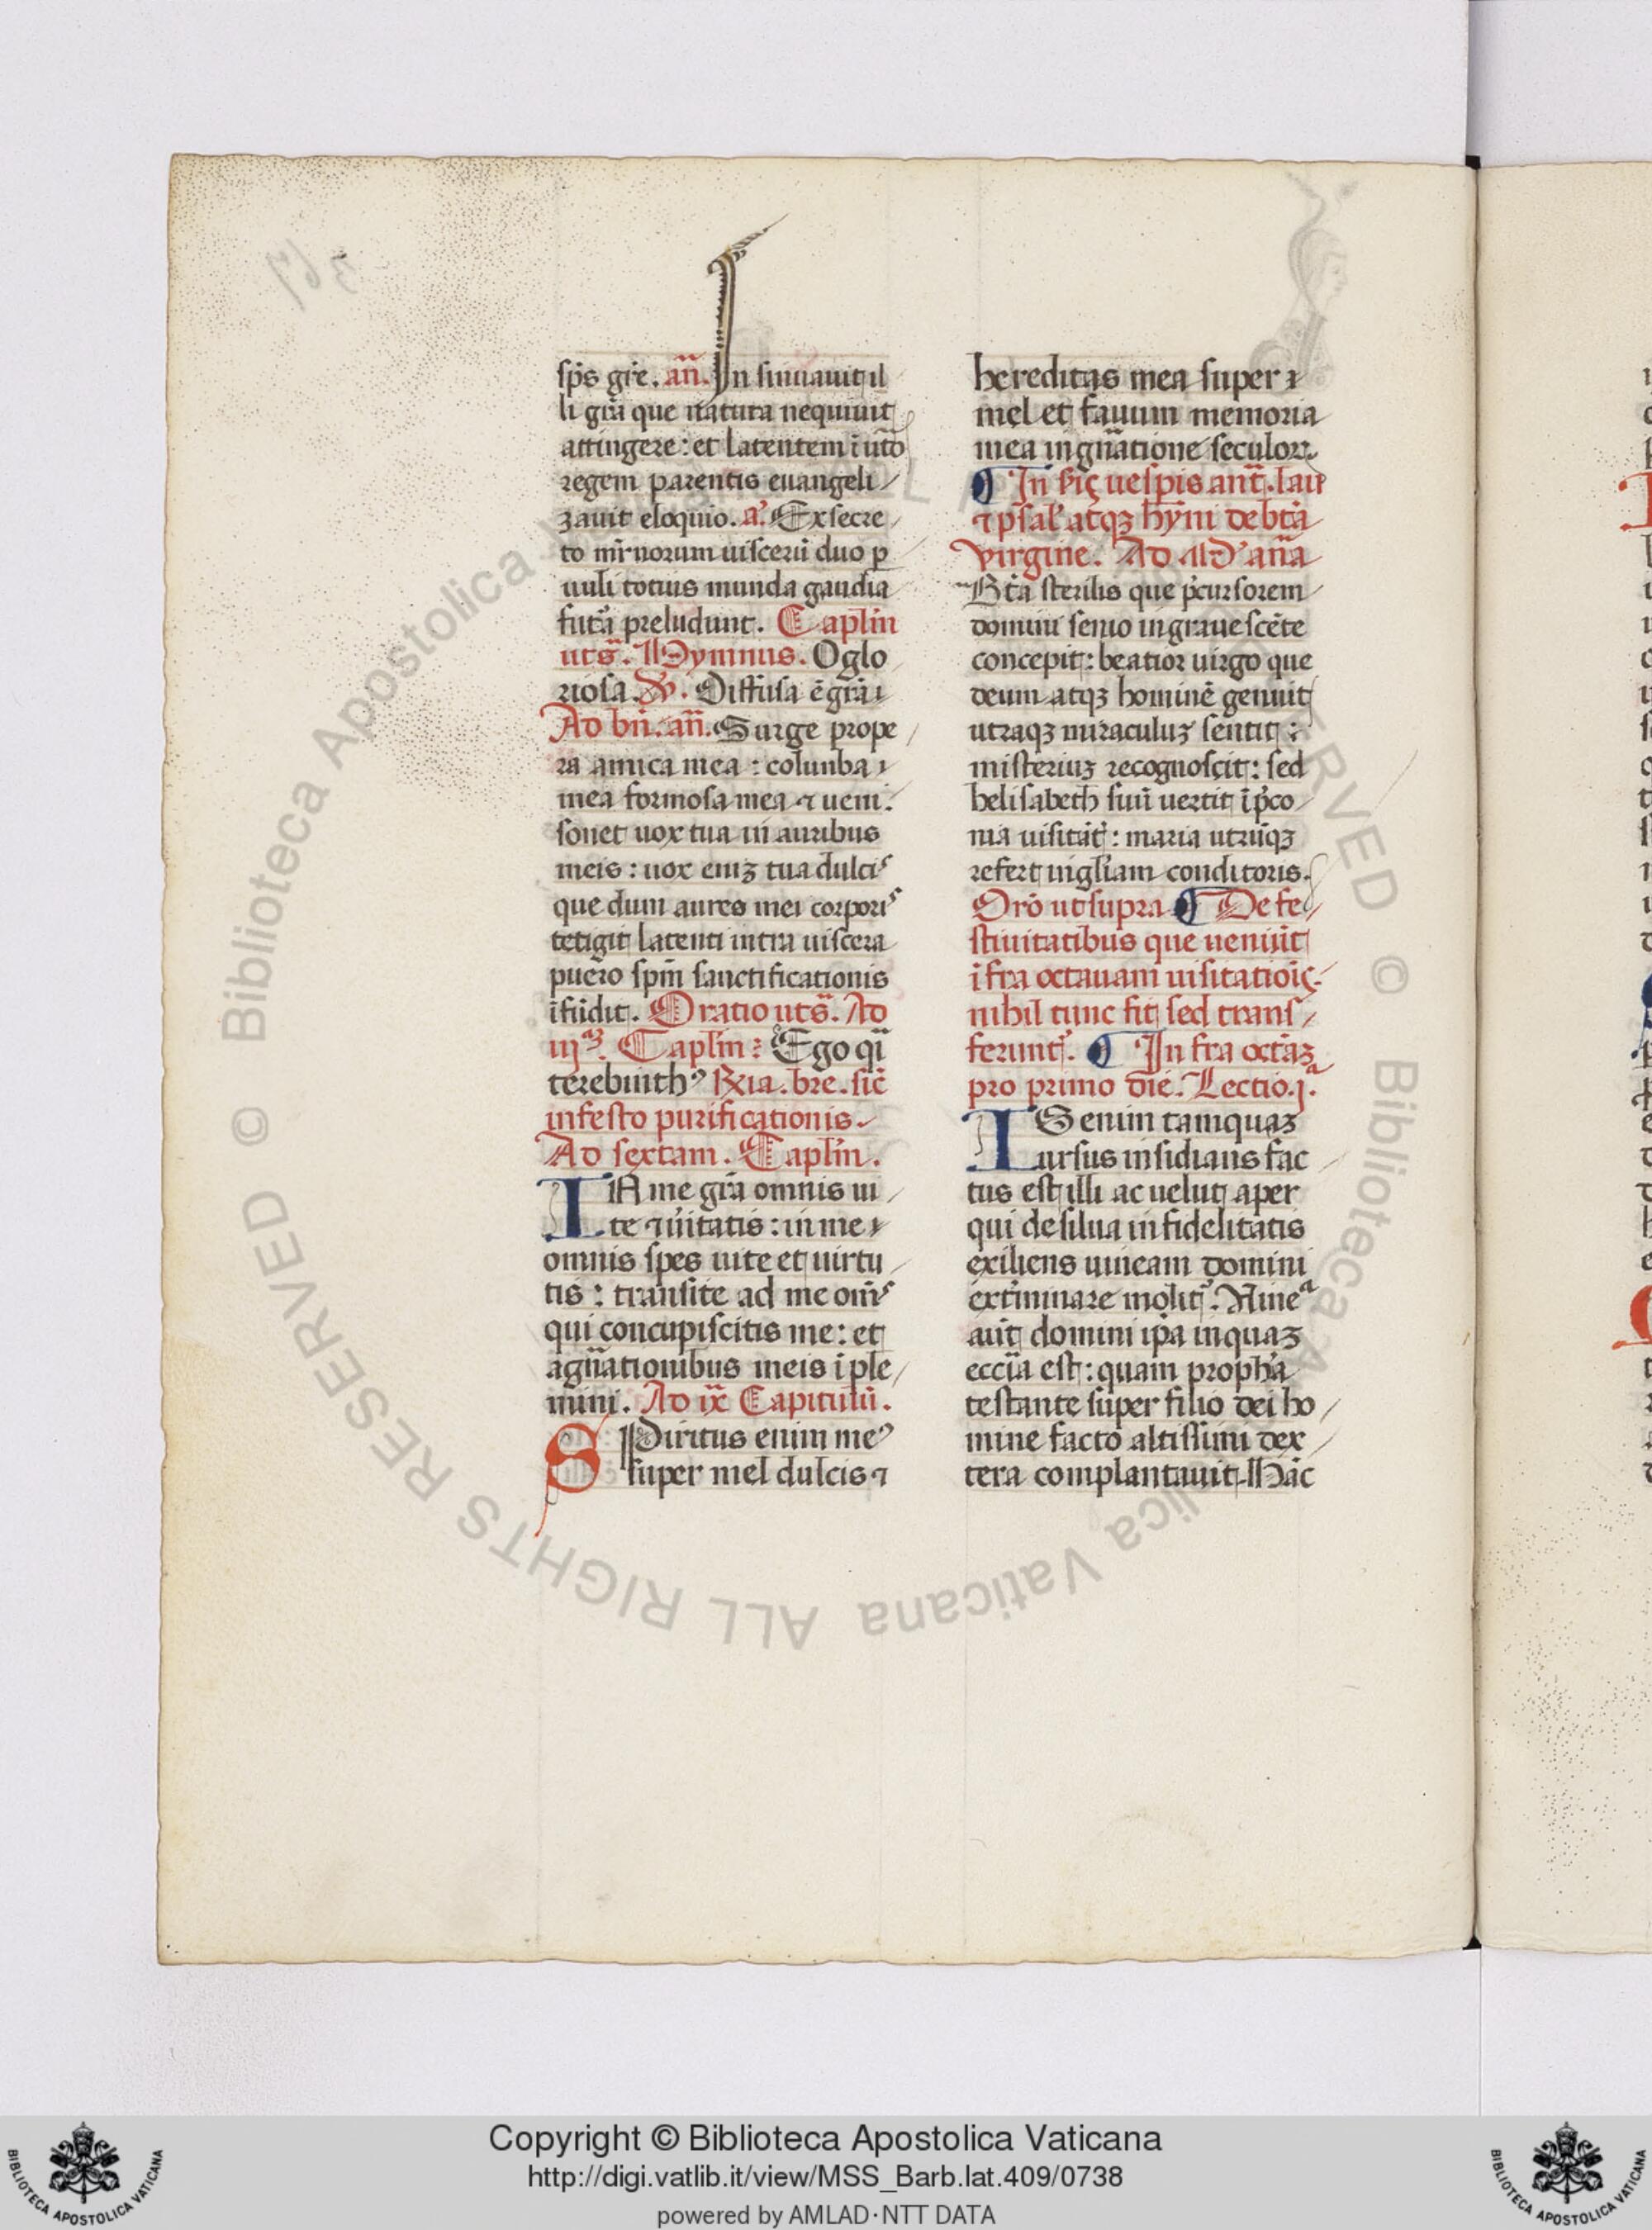 sp̄s gr̄e. an̄. In sinuauit il
li gr̄a que natura nequiuit
attingere: et latentem ī ut̄o
regem parentis euangeli
zauit eloquio. a͛. Ex secre
to mr̄norum uisceꝝ duo p
uuli totius munda gaudia
fut͛a preludunt. Caplm̄
uts̄. Hymnus. O glo
riosa. ꝟ. Diffusa ē gr̄a
Ad bn̄. an̄. Surge prope
ra amica mea: colunba
mea formosa mea ⁊ ueni:
sonet uox tua in auribus
meis: uox eniꝫ tua dulcis
que dum aures mei corporis
tetigit latenti intra uiscera
puero spm̄ sanctificationis
īfūdit. Oratio uts̄. Ad
iijᵃꝫ. Caplm̄: Ego qͥ
terebinthꝰ Rxia. bre. sic̄
in festo purificationis.
Ad sextam. Caplm̄.
IN me gr̄a omnis ui
te ⁊ ūitatis: in me
omnis spes uite et uirtu
tis: transite ad me om̄s
qui concupiscitis me: et
a gn̄ationibus meis īple
mini. Ad ix̄ Capitulū.
SPiritus enim meꝰ
super mel dulcis ⁊
hereditas mea super
mel et fauum memoria
mea in gn̄atione seculoꝝ.
¶ In sic̄ uesp̄is ant̄. lau
⁊ psal͛ atqꝫ hym̄i de bt̄a
virgine. Ad Md͛ an̄a
Bt̄a sterilis que p̄cursorem
domini senio ingrauescēte
concepit: beatior uirgo que
deum atqꝫ hominē genuit
utraqꝫ miraculuꝫ sentit:
misteriuꝫ recognoscit: sed
helisabeth suū uertit ī p̄co
nia uisitāt͛: maria utrūqꝫ
refert in gl͛iam conditoris.
Orō ut supra ¶ De fe
stiuitatibus que ueniūt
īfra octauam uisitatiōis.
nihil tunc fit sed trans
ferunt͛. ¶ Infra octāꝫ
pro primo diē. Lectio. jᵃ.
IS enim tamquaꝫ
ursus insidians fac
tus est illi ac uelut aper
qui de silua infidelitatis
exiliens uineam domini
ext͛minare molit͛. Uineᵃ
aūt domini ip̄a inquaꝫ
ecc̄ia est: quam proph͛a
testante super filio dei ho
mine facto altissimi dex
tera complantauit. Hāc
Copyright © Biblioteca Apostolica Vaticana
http://digi.vatlib.it/view/MSS_Barb.lat.409/0738
powered by AMLAD·NTT DATA
BIBLIOTECA APOSTOLICA VATICANA
BIBLIOTECA APOSTOLICA VATICANA
© Biblioteca Apostolica Vaticana ALL RIGHTS RESERVED
© Biblioteca Apostolica Vaticana ALL RIGHTS RESERVED